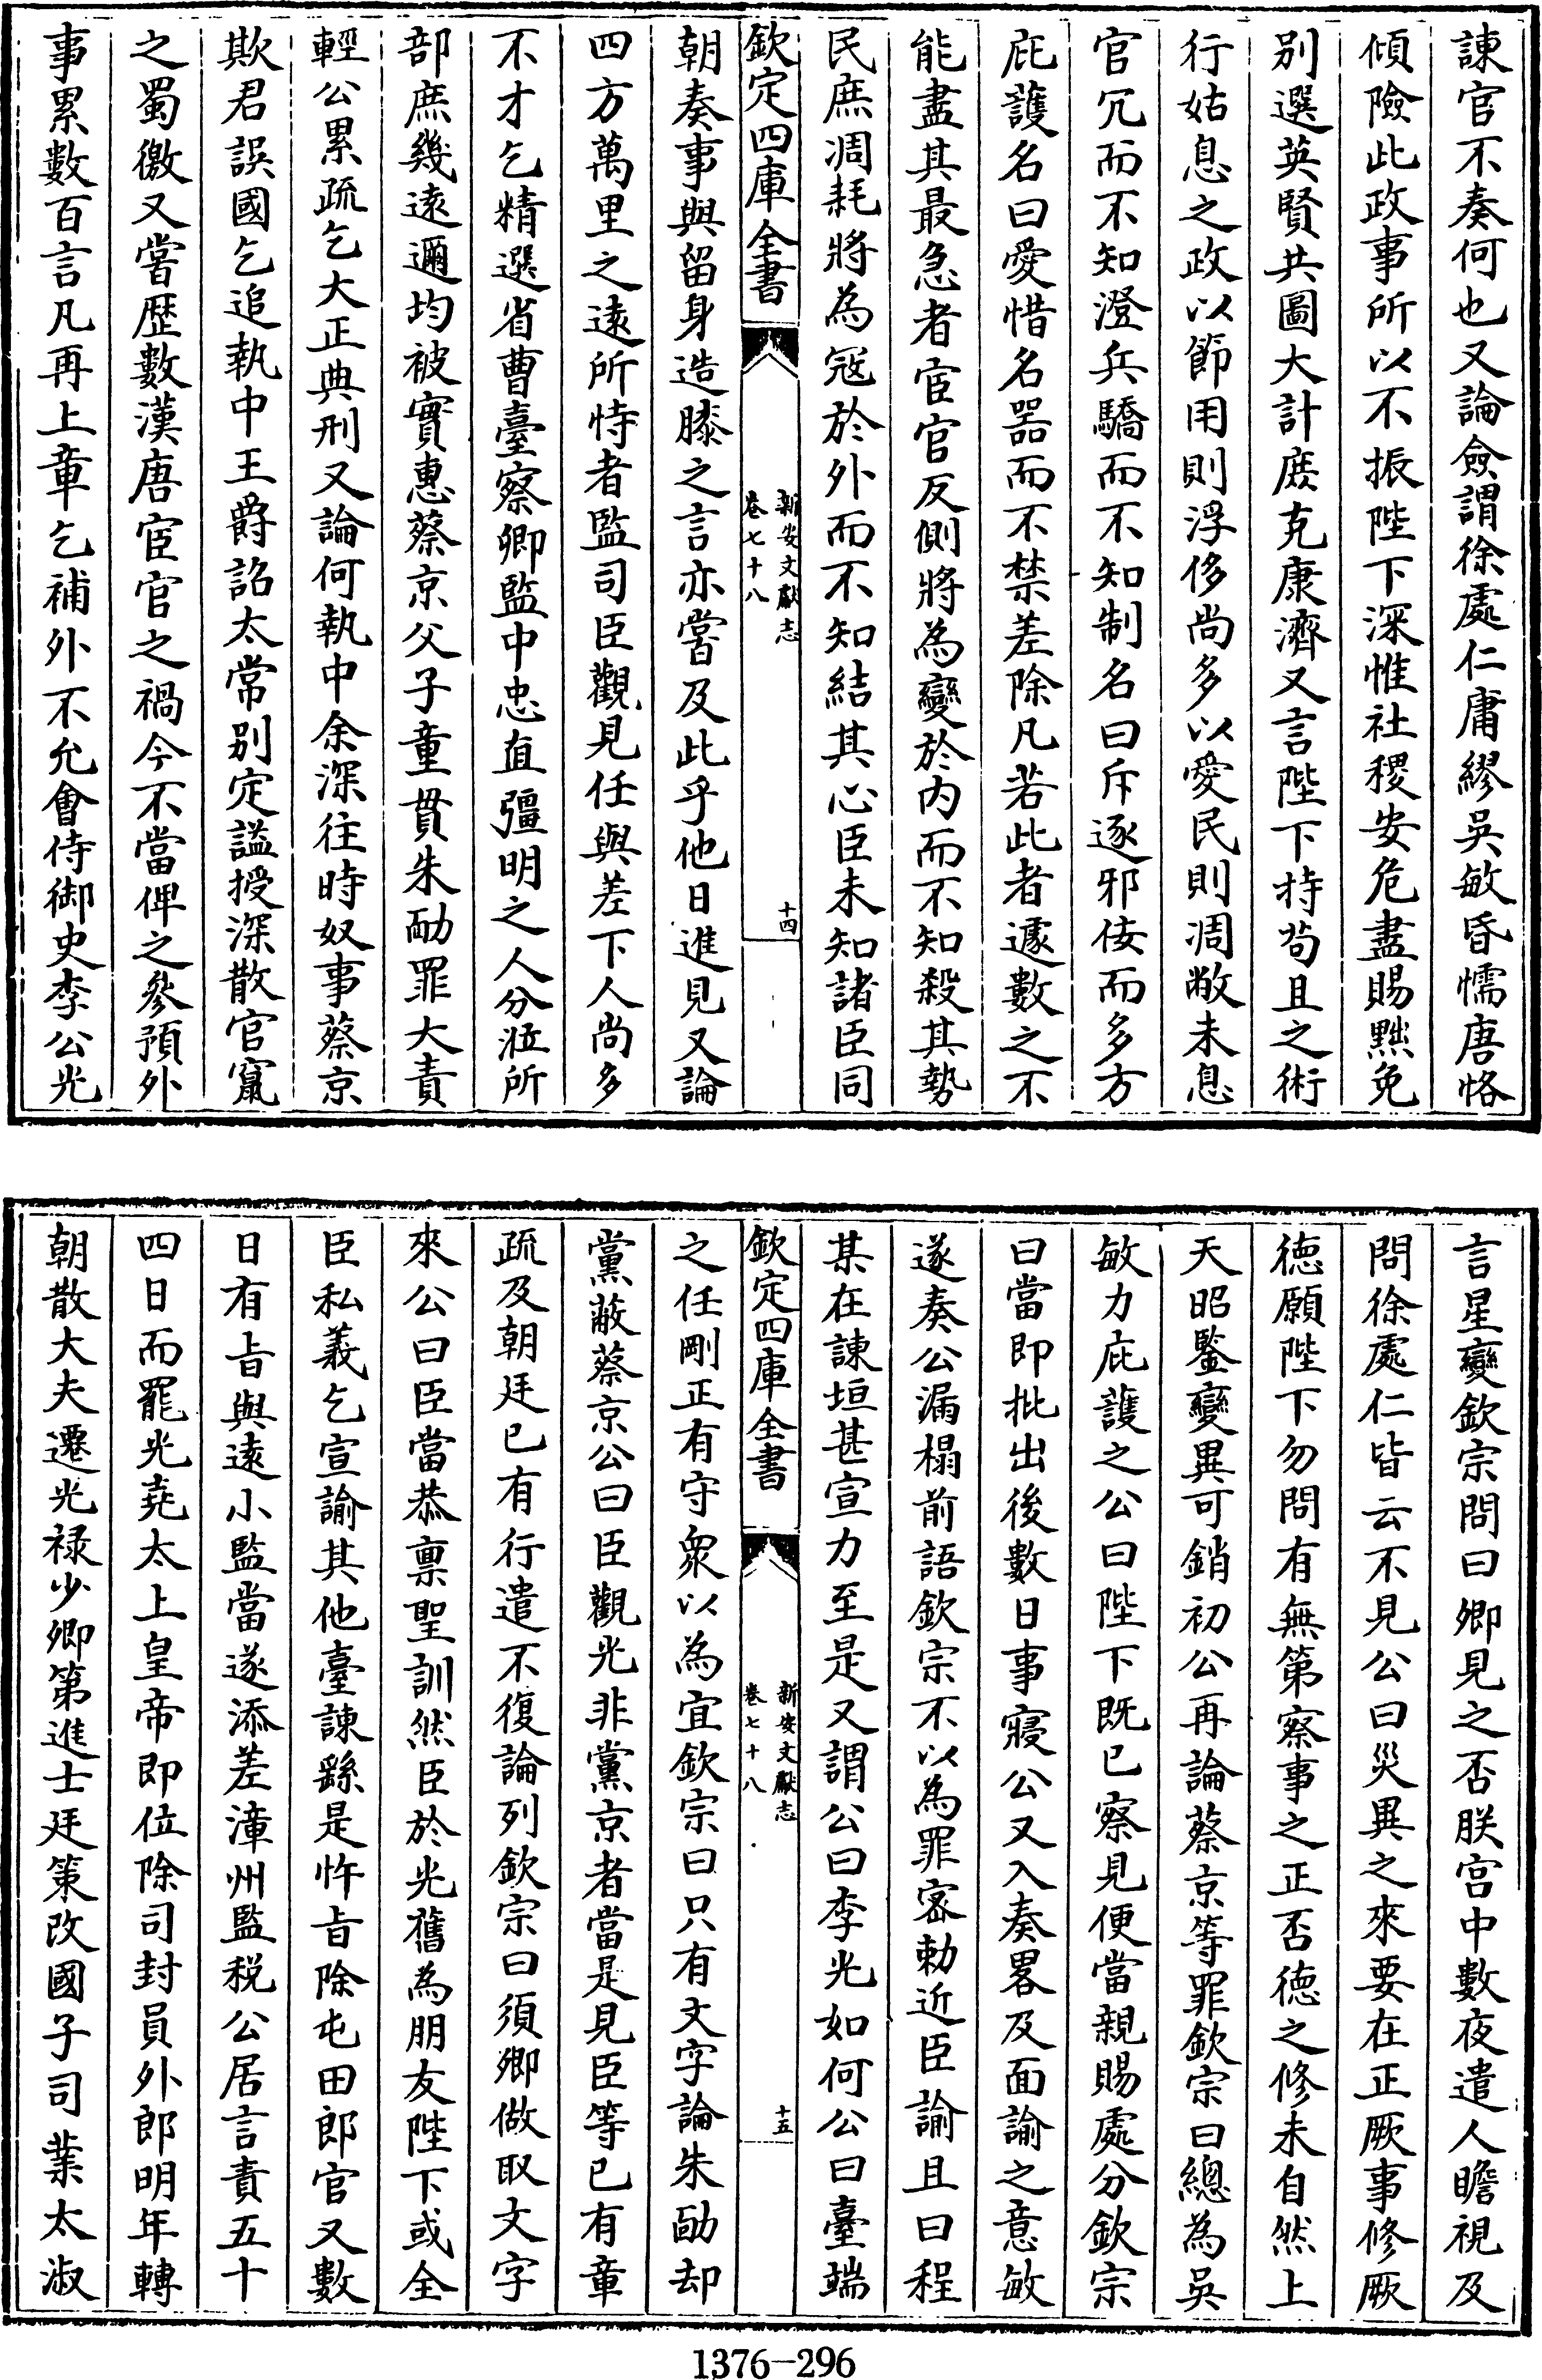 諌官不奏何也又論僉謂徐處仁庸繆吳敏昏懦唐恪
傾險此政事所以不振陛下深惟社稷安危盡賜黜免
别選英賢共圖大計庶克康濟又言陛下持茍且之術
行姑息之政以節用則浮侈尚多以愛民則凋敝未息
官冗而不知澄兵驕而不知制名曰斥逐邪佞而多方
庇護名曰愛惜名器而不禁差除凡若此者遽數之不
能盡其最急者宦官反側將為變於内而不知殺其勢
民庶凋耗將為冦於外而不知結其心臣未知諸臣同
欽定四庫全書
新安文獻志
卷七十八
十四
朝奏事與留身造膝之言亦嘗及此乎他日進見又論
四方萬里之逺所恃者監司臣觀見任與差下人尚多
不才乞精選省曹臺察卿監中忠直彊明之人分涖所
部庶幾逺邇均被實惠蔡京父子童貫朱勔罪大責
輕公累疏乞大正典刑又論何執中余深往時奴事蔡京
欺君誤國乞追執中王爵詔太常别定諡授深散官竄
之蜀徼又嘗歴數漢唐宦官之禍今不當俾之參預外
事累數百言凡再上章乞補外不允會侍御史李公光
言星變欽宗問曰卿見之否朕宫中數夜遣人瞻視及
問徐處仁皆云不見公曰災異之來要在正厥事修厥
徳願陛下勿問有無第察事之正否徳之修未自然上
天昭鑒變異可銷初公再論蔡京等罪欽宗曰總為吳
敏力庇護之公曰陛下既已察見便當親賜處分欽宗
曰當即批出後數日事寢公又入奏畧及面諭之意敏
遂奏公漏榻前語欽宗不以為罪宻勅近臣諭且曰程
某在諌垣甚宣力至是又謂公曰李光如何公曰臺端
欽定四庫全書
新安文獻志
卷七十八
十五
之任剛正有守衆以為宜欽宗曰只有文字論朱勔却
黨蔽蔡京公曰臣觀光非黨京者當是見臣等已有章
疏及朝廷已有行遣不復論列欽宗曰須卿做取文字
來公曰臣當恭禀聖訓然臣於光舊為朋友陛下或全
臣私義乞宣諭其他臺諌繇是忤旨除屯田郎官又數
日有旨與逺小監當遂添差漳州監税公居言責五十
四日而罷光堯太上皇帝即位除司封員外郎明年轉
朝散大夫遷光禄少卿第進士廷策改國子司業太淑
1376-296